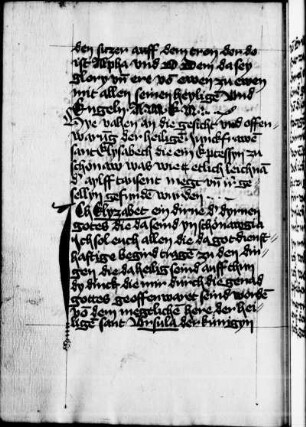 den sitzen auff dem tron den do
ist Alpha vnd O Dem da sey
glory vn̄ ere vō ewen zu ewen
mit allen seinen heylige vnd
Engeln A m e n
Hye vallen an die gesicht vnd offen
warūg der heilige Junckfrawē
sant Elysabeth die ein kptessyn zu
schonaw was wie etlich leichnā
d' aylff tausent megt vn̄ ir ge
sellyn gefunde wurden
Ich Elyzabet ein dirne d' dyrnen
gotes die da seind yn schonawgia
Ich sol euch allen die da got dienst
hafftige begird tragē zu den din
gen die da heilig seind auff thun
dy dinck die mir durch die genad
gottes geoffenwaret seind wordē
vō dem megtliche here der hei
lige sant Vrsula der kunigyn